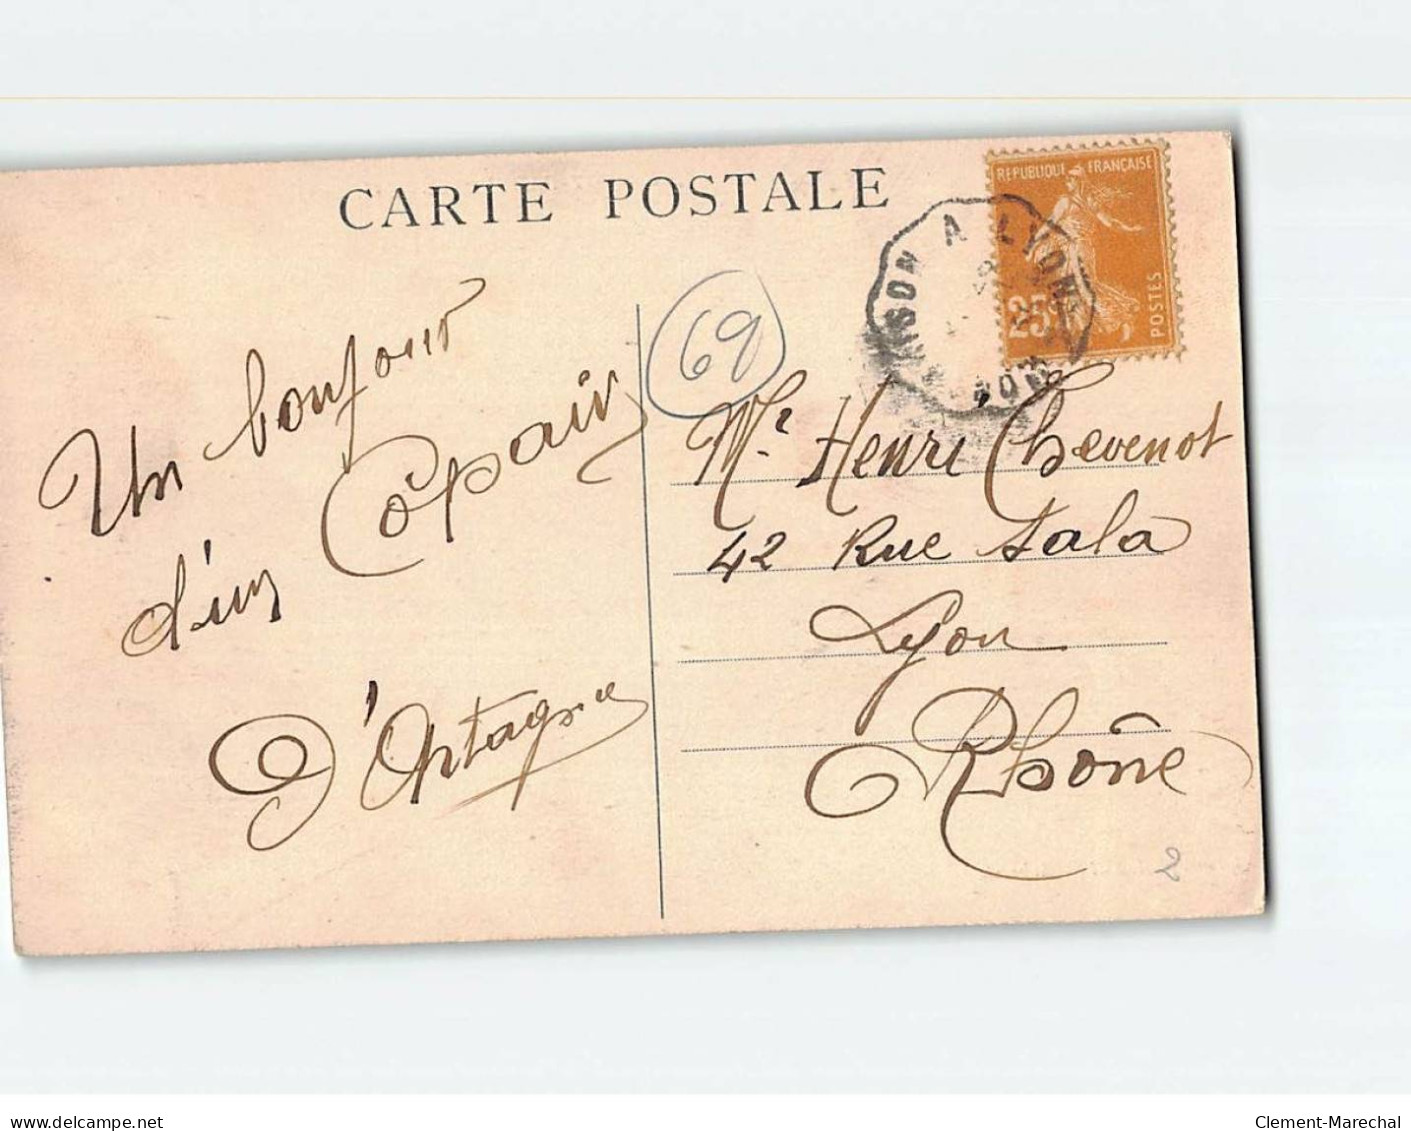 CARTE POSTALE
REPUBLIQUE FRANÇAISE
25c
POSTES
A LYON
69
Un bonjour
d'un Copain
D'Artagnan
Mr. Henri Chevenot
42 Rue Sala
Lyon
Rhône
2
www.delcampe.net
Clement-Marechal